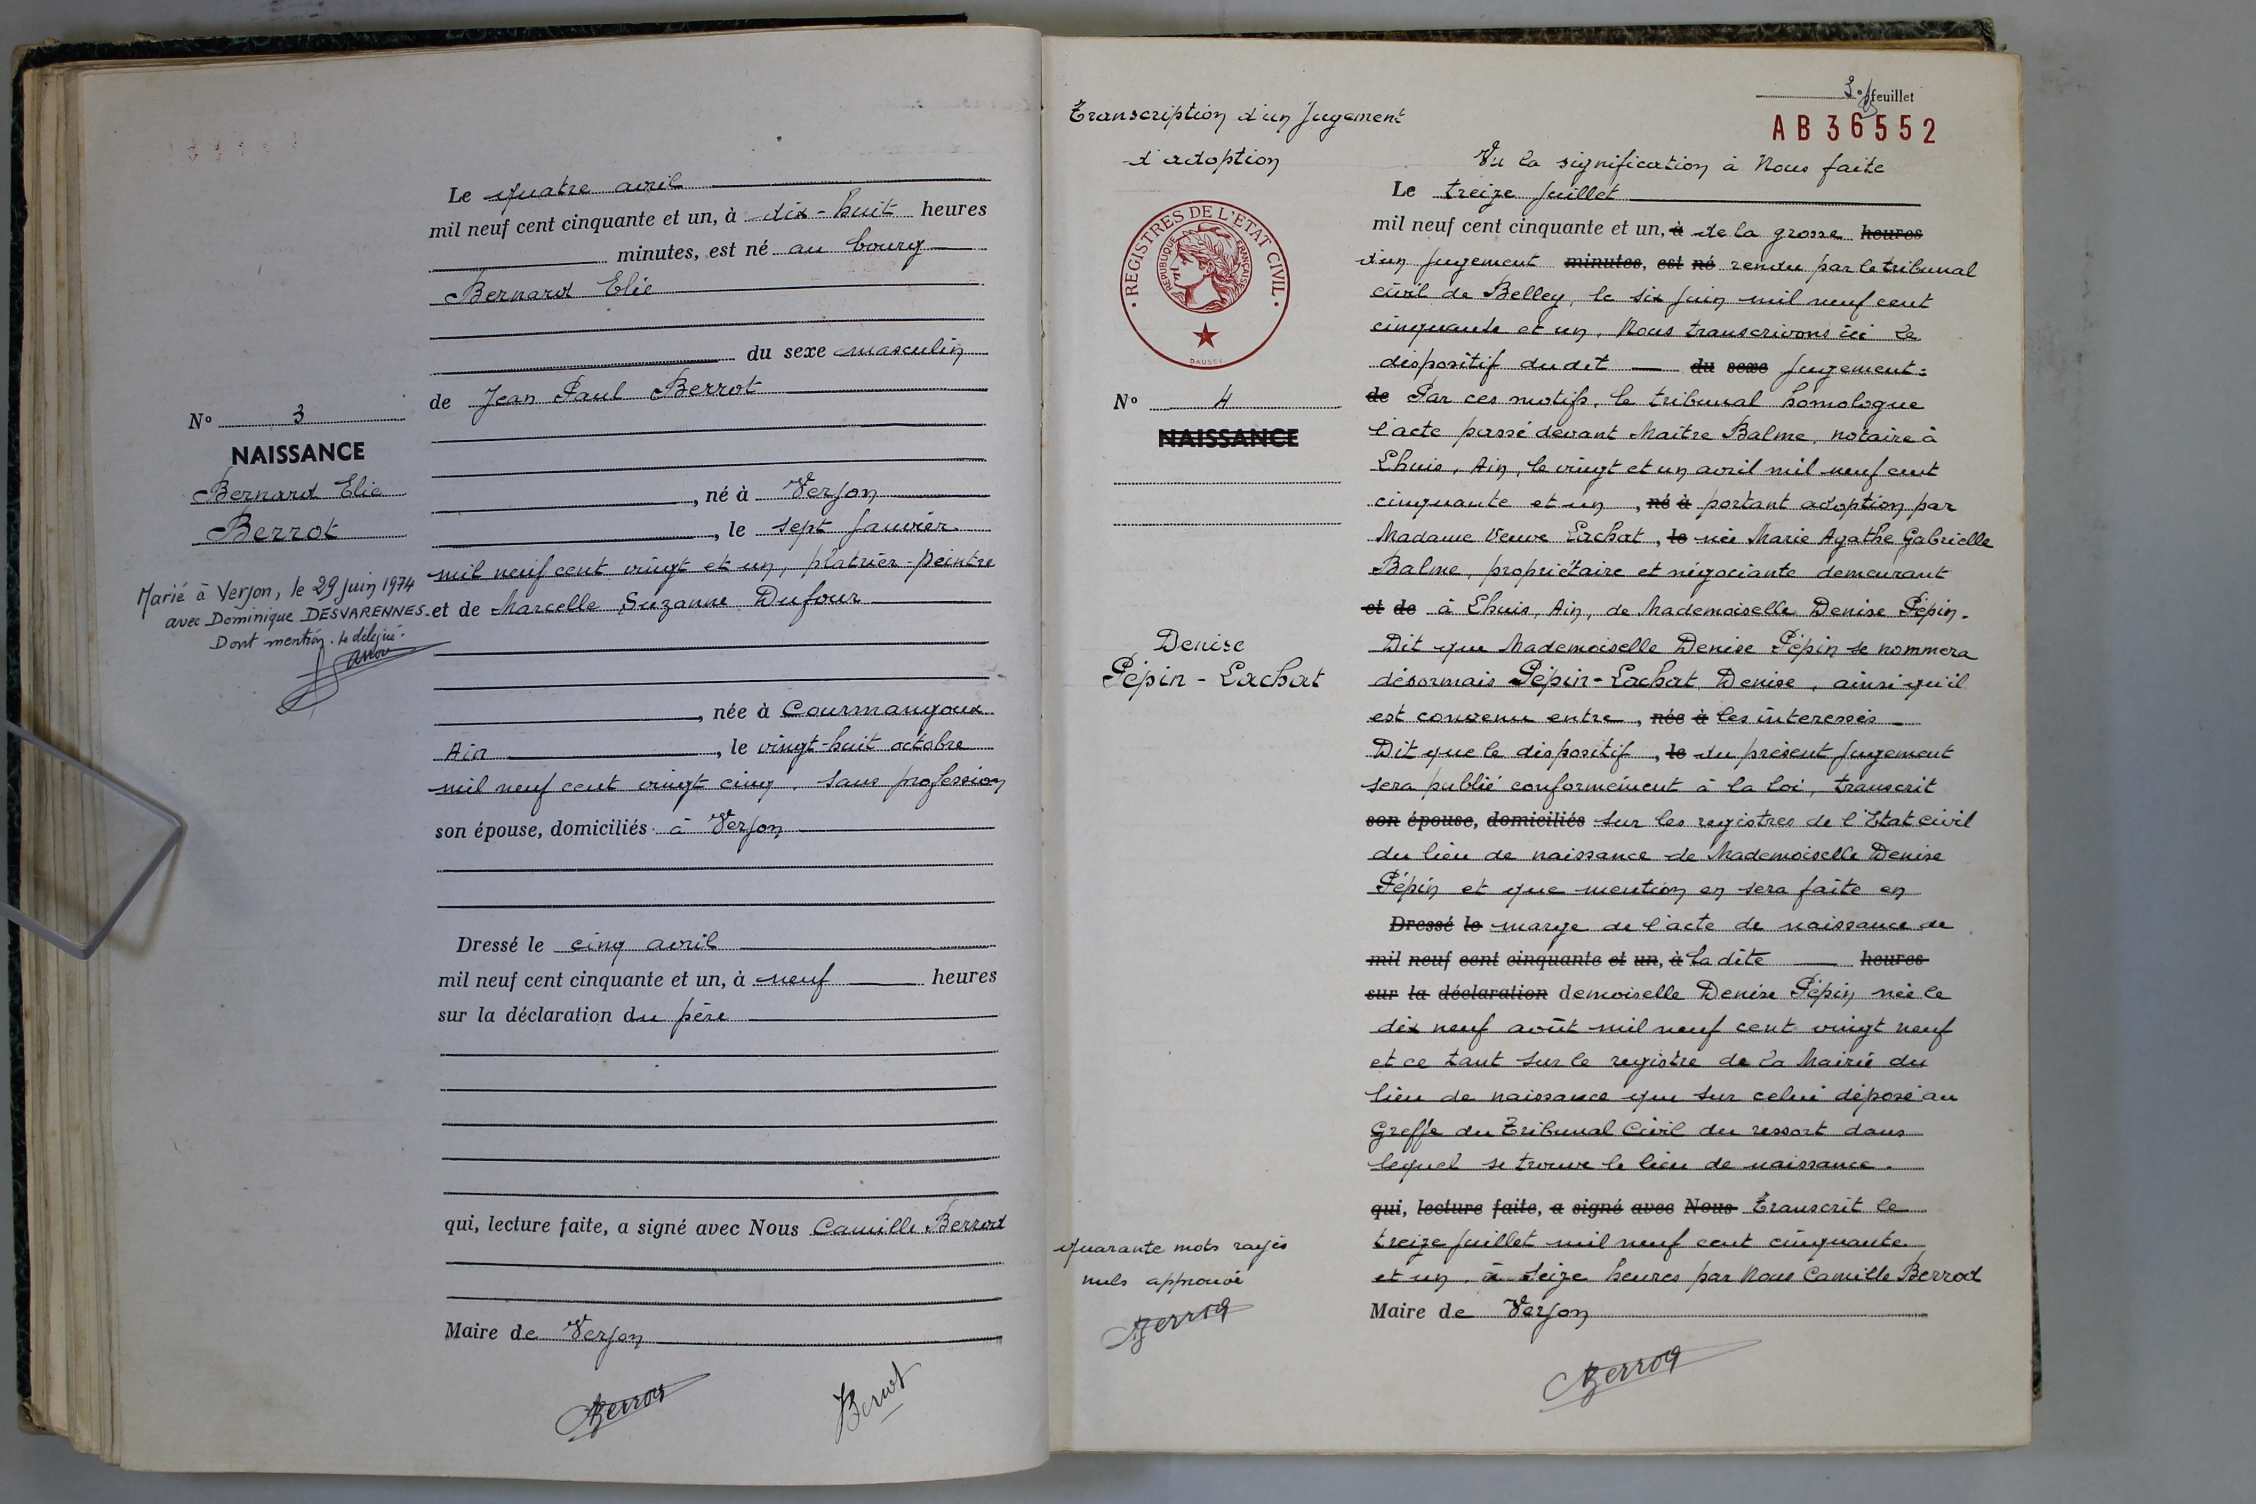 Le quatre avril
mil neuf cent cinquante et un, à dix-huit heures
minutes, est né au bourg
Bernard Elie
du sexe masculin
de Jean Paul Berrot
, né à Verjon
, le sept janvier
mil neuf cent vingt et un, plâtrier-peintre
et de Marcelle Suzanne Dufour
, née à Courmangoux
Ain , le vingt-huit octobre
mil neuf cent vingt cinq, sans profession
son épouse, domiciliés à Verjon
Dressé le cinq avril
mil neuf cent cinquante et un, à neuf heures
sur la déclaration du père
qui, lecture faite, a signé avec Nous Camille Berrod
Maire de Verjon
Berrod
Berrot
No 3
NAISSANCE
Bernard Elie
Berrot
Marié à Verjon, le 29 juin 1974
avec Dominique DESVARENNES.
Dont mention. Le délégué.
Transcription d'un Jugement
d'adoption
REGISTRES DE L'ETAT CIVIL
REPUBLIQUE FRANÇAISE
No 4
NAISSANCE
Denise
Pépin - Lachat
quarante mots rayés
nuls approuvé
Berrod
3e feuillet
AB36552
Vu la signification à Nous faite
Le treize juillet
mil neuf cent cinquante et un, à de la grosse heures
d'un jugement minutes, est né rendu par le tribunal
civil de Belley, le six juin mil neuf cent
cinquante et un, Nous transcrivons ici le
dispositif du dit du sexe jugement:
de Par ces motifs, le tribunal homologue
l'acte passé devant Maître Balme, notaire à
Lhuis, Ain, le vingt et un avril mil neuf cent
cinquante et un , né à portant adoption par
Madame Veuve Lachat , le née Marie Agathe Gabrielle
Balme, propriétaire et négociante demeurant
et de à Lhuis, Ain, de Mademoiselle Denise Pépin.
Dit que Mademoiselle Denise Pépin se nommera
désormais Pépin-Lachat Denise, ainsi qu'il
est convenu entre , née à les intéressés
Dit que le dispositif , le du présent jugement
sera publié conformément à la loi, transcrit
son épouse, domiciliés sur les registres de l'Etat civil
du lieu de naissance de Mademoiselle Denise
Pépin et que mention en sera faite en
Dressé le marge de l'acte de naissance de
mil neuf cent cinquante et un, à la dite heures
sur la déclaration demoiselle Denise Pépin née le
dix neuf août mil neuf cent vingt neuf
et ce tant sur le registre de la Mairie du
lieu de naissance que sur celui déposé au
Greffe du Tribunal Civil du ressort dans
lequel se trouve le lieu de naissance.
qui, lecture faite, a signé avec Nous Transcrit le
treize juillet mil neuf cent cinquante
et un, à seize heures par Nous Camille Berrod
Maire de Verjon
Berrod